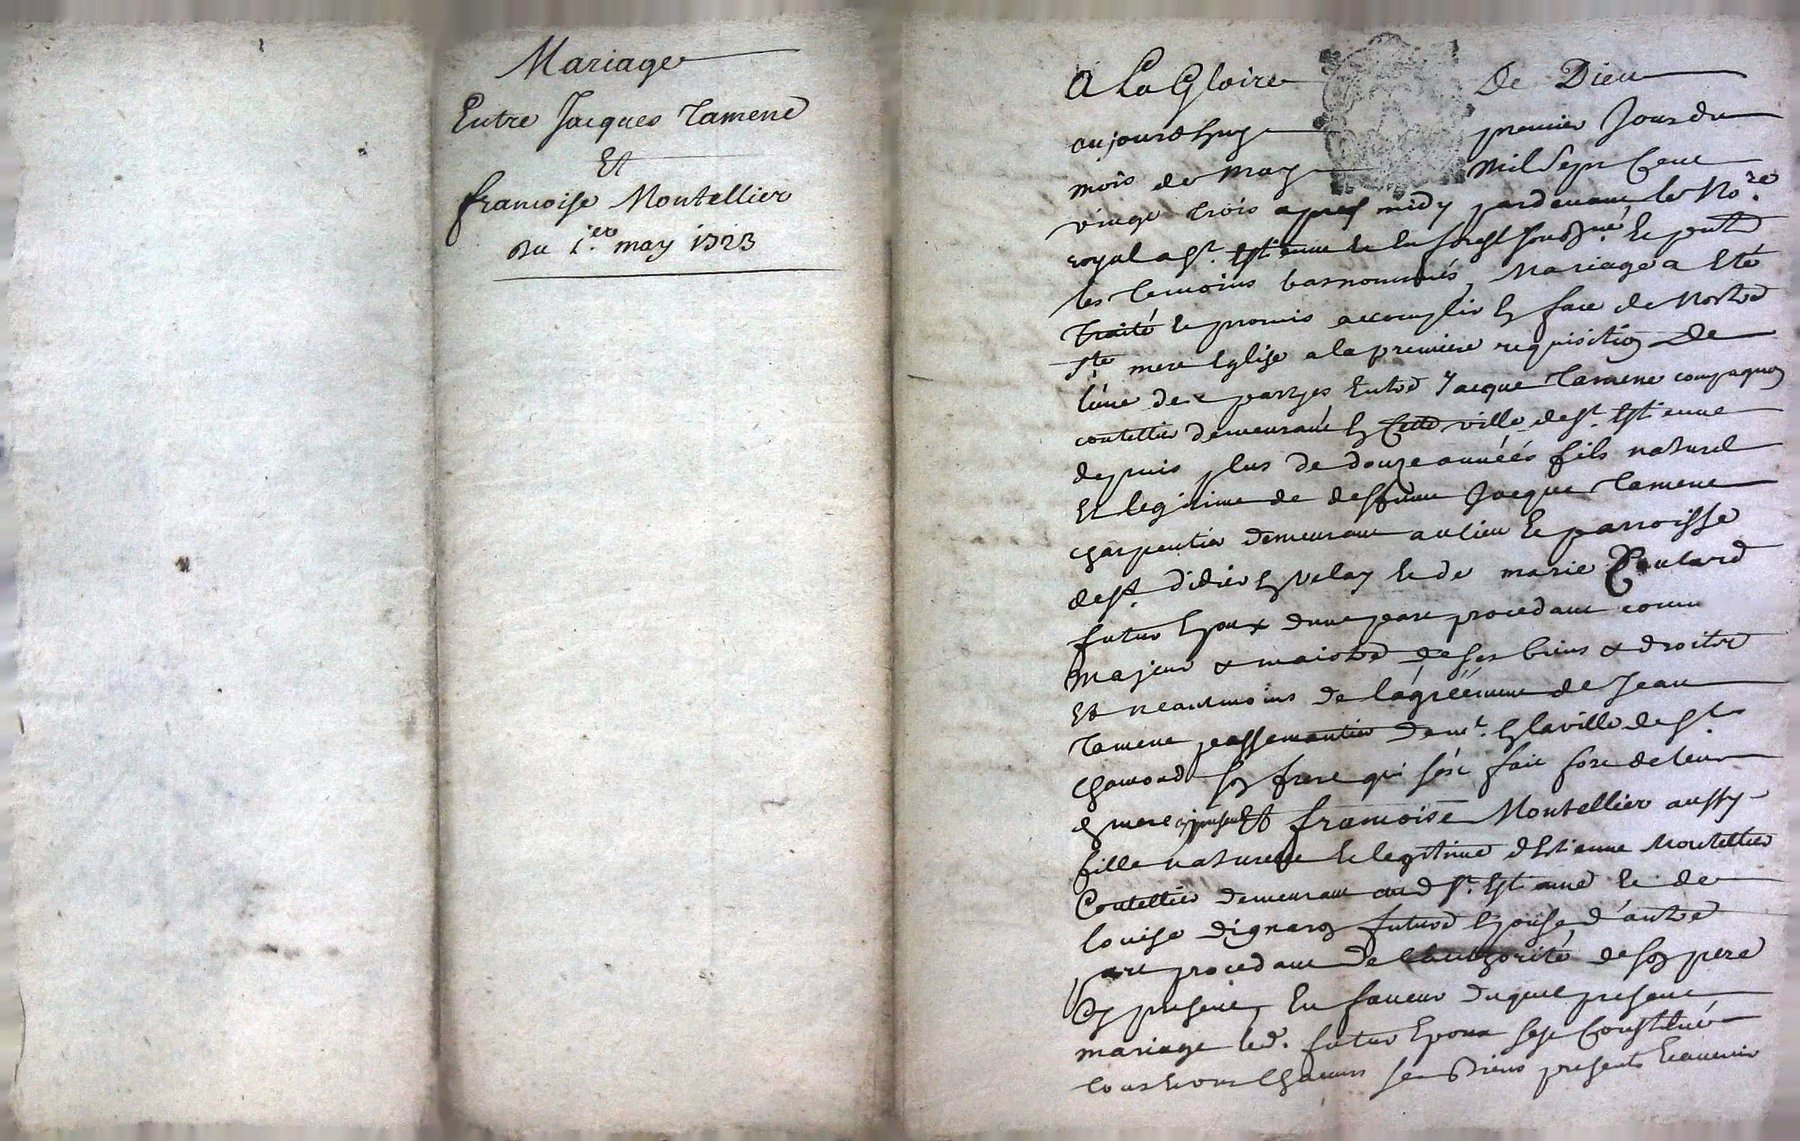 Mariage
Entre Jacques Tamene
Et
francoise Montellier
du 1.er may 1723
A La Gloire de Dieu
aujourdhuy premier Jour du
mois de may mil sept Cent
vingt trois apres midy pardevant le No.re
royal a St. Estienne en forest soussigné, Et present
les temoins bas nommés, Mariage a été
traité et promis accomplir en face de nostre
Ste mere Eglise a la premiere requisition de
lune des partyes Entre Jacque Tamene compagnon
coutellier demeurant en Cette ville de St. Estienne
depuis plus de douze années fils naturel
Et legitime de deffunt Jacque Tamene
charpentier demeurant au lieu Et parroisse
de St. didier en Velay Et de marie Coulard
futur Epoux dune part procedant comme
majeur & maistre de ses biens & droits
Et neantmoins de l'agréement de Jean
Tamene passemantier demt. en la ville de St
chamond son frere qui s'est fait fort de leur
mere Et francoise Montellier aussy
fille naturelle et legitime d'Estienne Montellier
Coutellier demeurant aud St. Estienne Et de
louise future Epouse d'autre
part procedant de l'authorité de son pere
cy present, En faveur duquel present
mariage led. futur Epoux sest Constitué
tous Et uns Chacuns ses Biens presents Et avenir